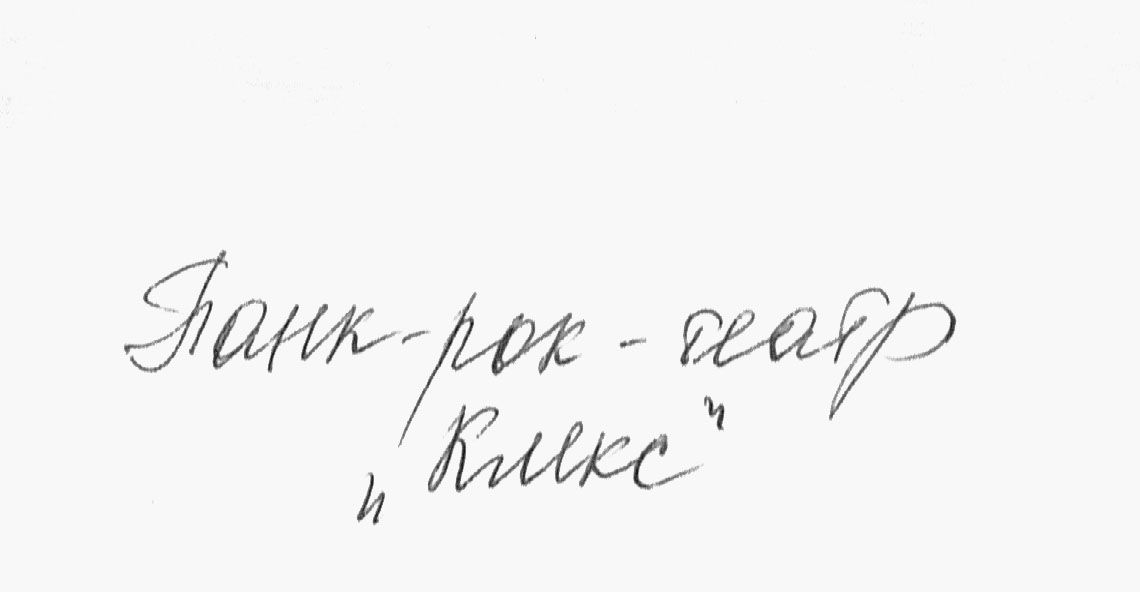 Панк-рок-театр
„Клекс"